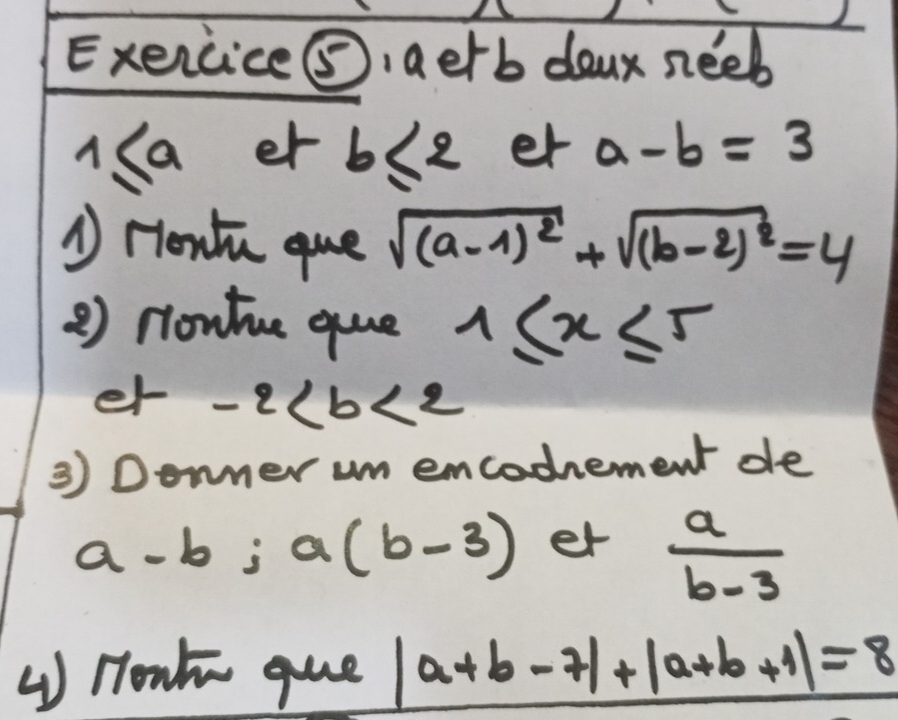 Exercice ⑤ : a et b deux réels
1 ⩽ a et b ⩽ 2 et a - b = 3
1) Montrer que √(a-1)² + √(b-2)² = 4
2) Montrer que 1 ⩽ x ⩽ 5
et -2 < b < 2
3) Donner un encadrement de
a - b ; a(b-3) et a/(b-3)
4) Montrer que |a+b-7| + |a+b+1| = 8